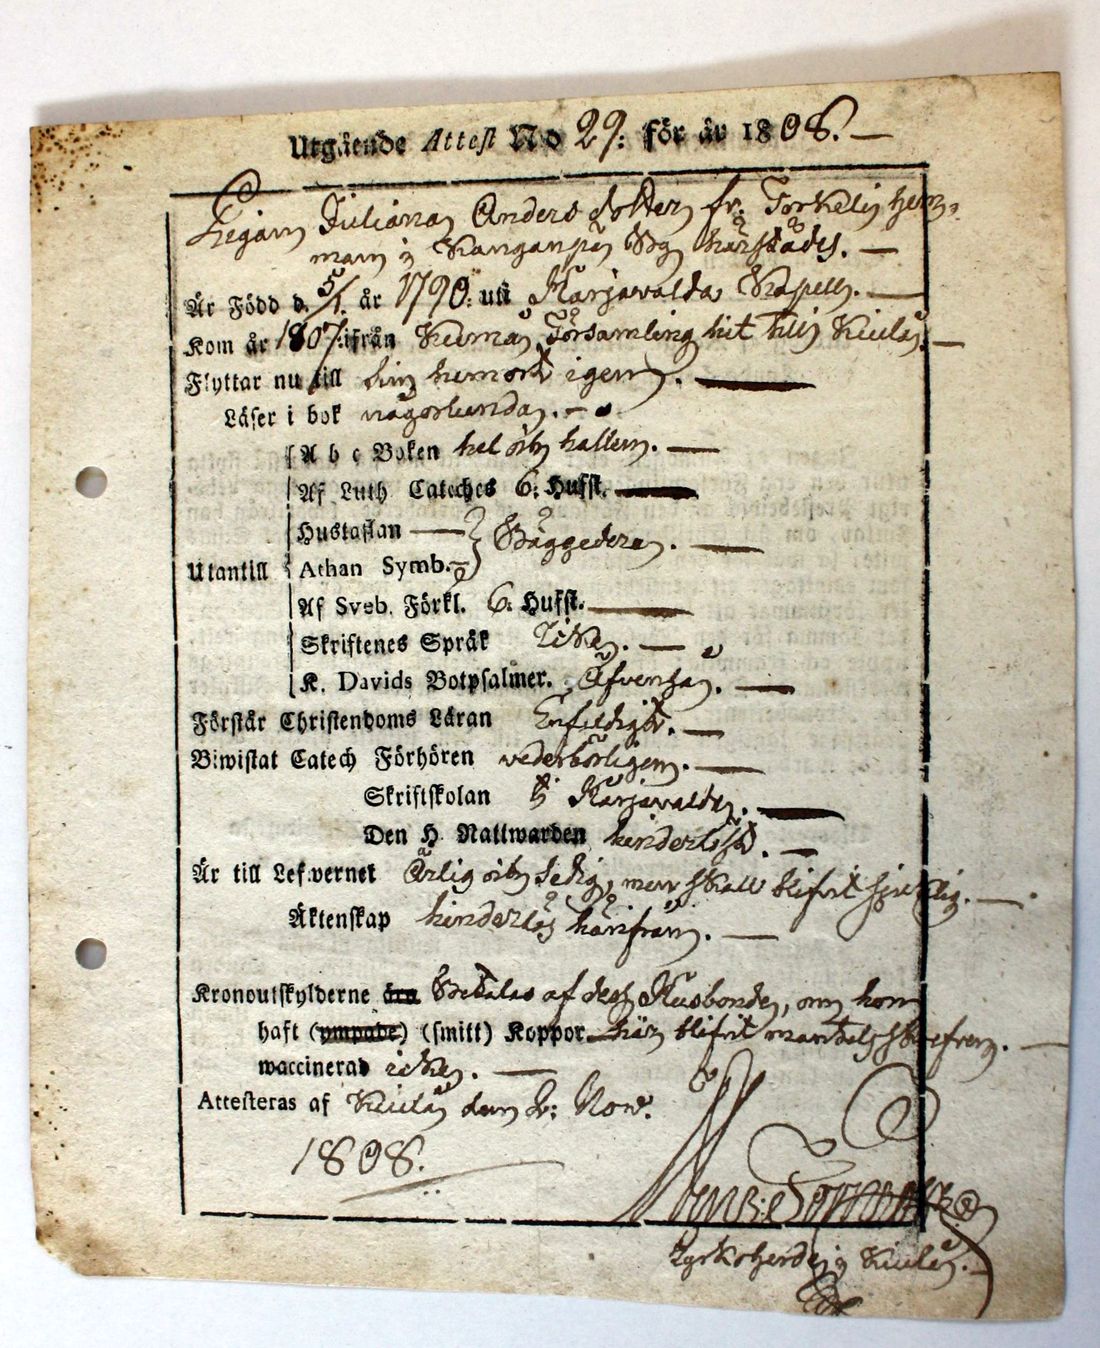 Utgående Attest No 29: för år 1808. —
Pigan Juliana Anders dotter fr: Torkeli hem-
man i Kanganpä By härstädes. —
Är Född d. 5/1. år 1790: uti Karjawalda Kapell. —
Kom år 1807: ifrån Församling hit till Kiulå. —
Flyttar nu till sin hemort igen. —
Läser i bok någorlunda. —
A b c Boken hel och hållen. —
Af Luth Cateches 6: Hufst. —
Hustaflan — } Bäggedera. —
Utantill Athan Symb. —
Af Sveb. Förkl. 6: Hufst. —
Skriftenes Språk Icke. —
K. Davids Botpsalmer. Äfvenså. —
Förstår Christendoms Läran Enfeldigt. —
Biwistat Catech Förhören vederbörligen. —
Skriftskolan i Karjawalda. —
Den H. Nattwarden hinderlöst. —
Är till Lefvernet Ärlig och Sedig, men skall blifvit —
Äktenskap hinderlös härifrån. —
Kronoutskylderne äro Betalas af dess Husbonde, om hon
haft (ympade) (smitt) Koppor här blifvit mantels skrefven. —
waccinerad icke. —
Attesteras af Kiulå den 2: Nov.
1808.
Kyrkoherde i Kiulå. —